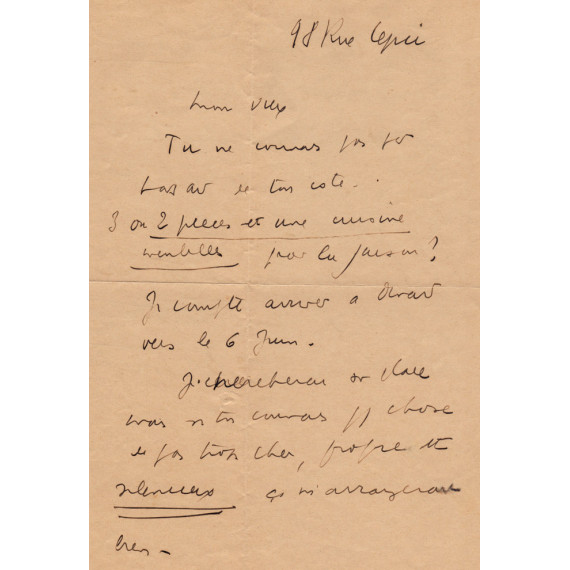 98 Rue Lepic
Mon vieux
Tu ne connais pas par
hasard de ton côté..
3 ou 2 pieces et une cuisine
meublées pour la saison?
Je compte arriver a Dinard
vers le 6 Juin.
Je chercherai sur place
mais si tu connais qq chose
de pas trop cher, propre et
silencieux ça m'arrangerait
bien -